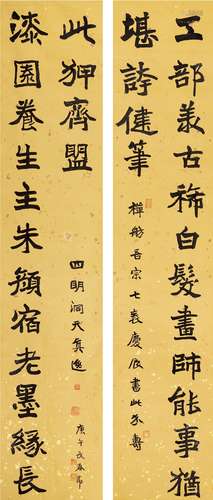 工部羨古稀白髮畫師能事猶
堪誇健筆
吾宗七袠慶辰書此為壽
漆園養生主朱顏宿老墨緣長
此狎齊盟
四明洞天
庚午